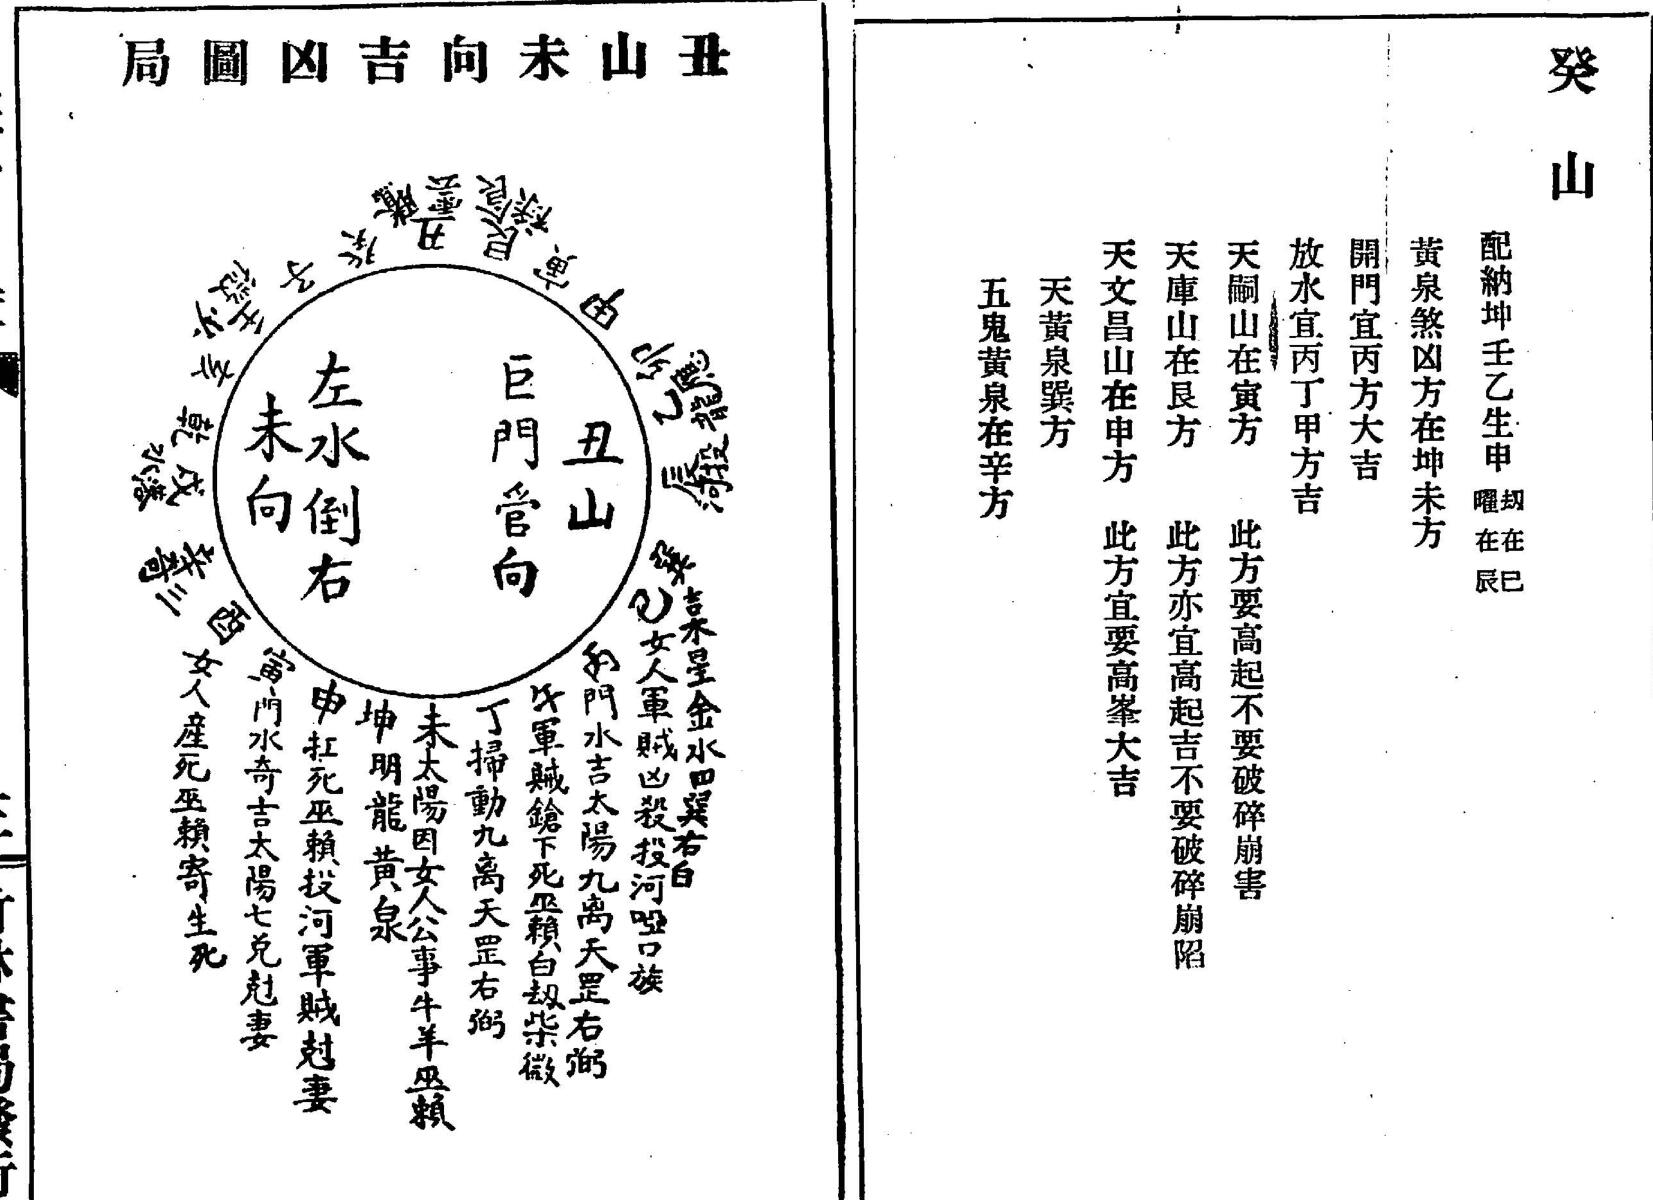 癸山
配納坤壬乙生申
刼在巳
曜在辰
黃泉煞凶方在坤未方
開門宜丙方大吉
放水宜丙丁甲方吉
天嗣山在寅方 此方要高起不要破碎崩害
天庫山在艮方 此方亦宜高起吉不要破碎崩陷
天文昌山在申方 此方宜要高峯大吉
天黃泉巽方
五鬼黃泉在辛方
丑山未向吉凶圖局
丑山
巨門官向
左水倒右
未向
丑
艮
寅
卯
乙
辰
巽吉水星金水四巽右白
巳女人軍賊凶殺投河啞口族
門水吉太陽九离天罡右弼
午軍賊鎗下死巫賴白刼柴微
丁掃動九离天罡右弼
未太陽因女人公事牛羊巫賴
坤明龍黃泉
申扛死巫賴投河軍賊尅妻
寅門水奇吉太陽七兑尅妻
酉女人産死巫賴寄生死
辛
三奇
戍
乾
亥
壬
子
癸